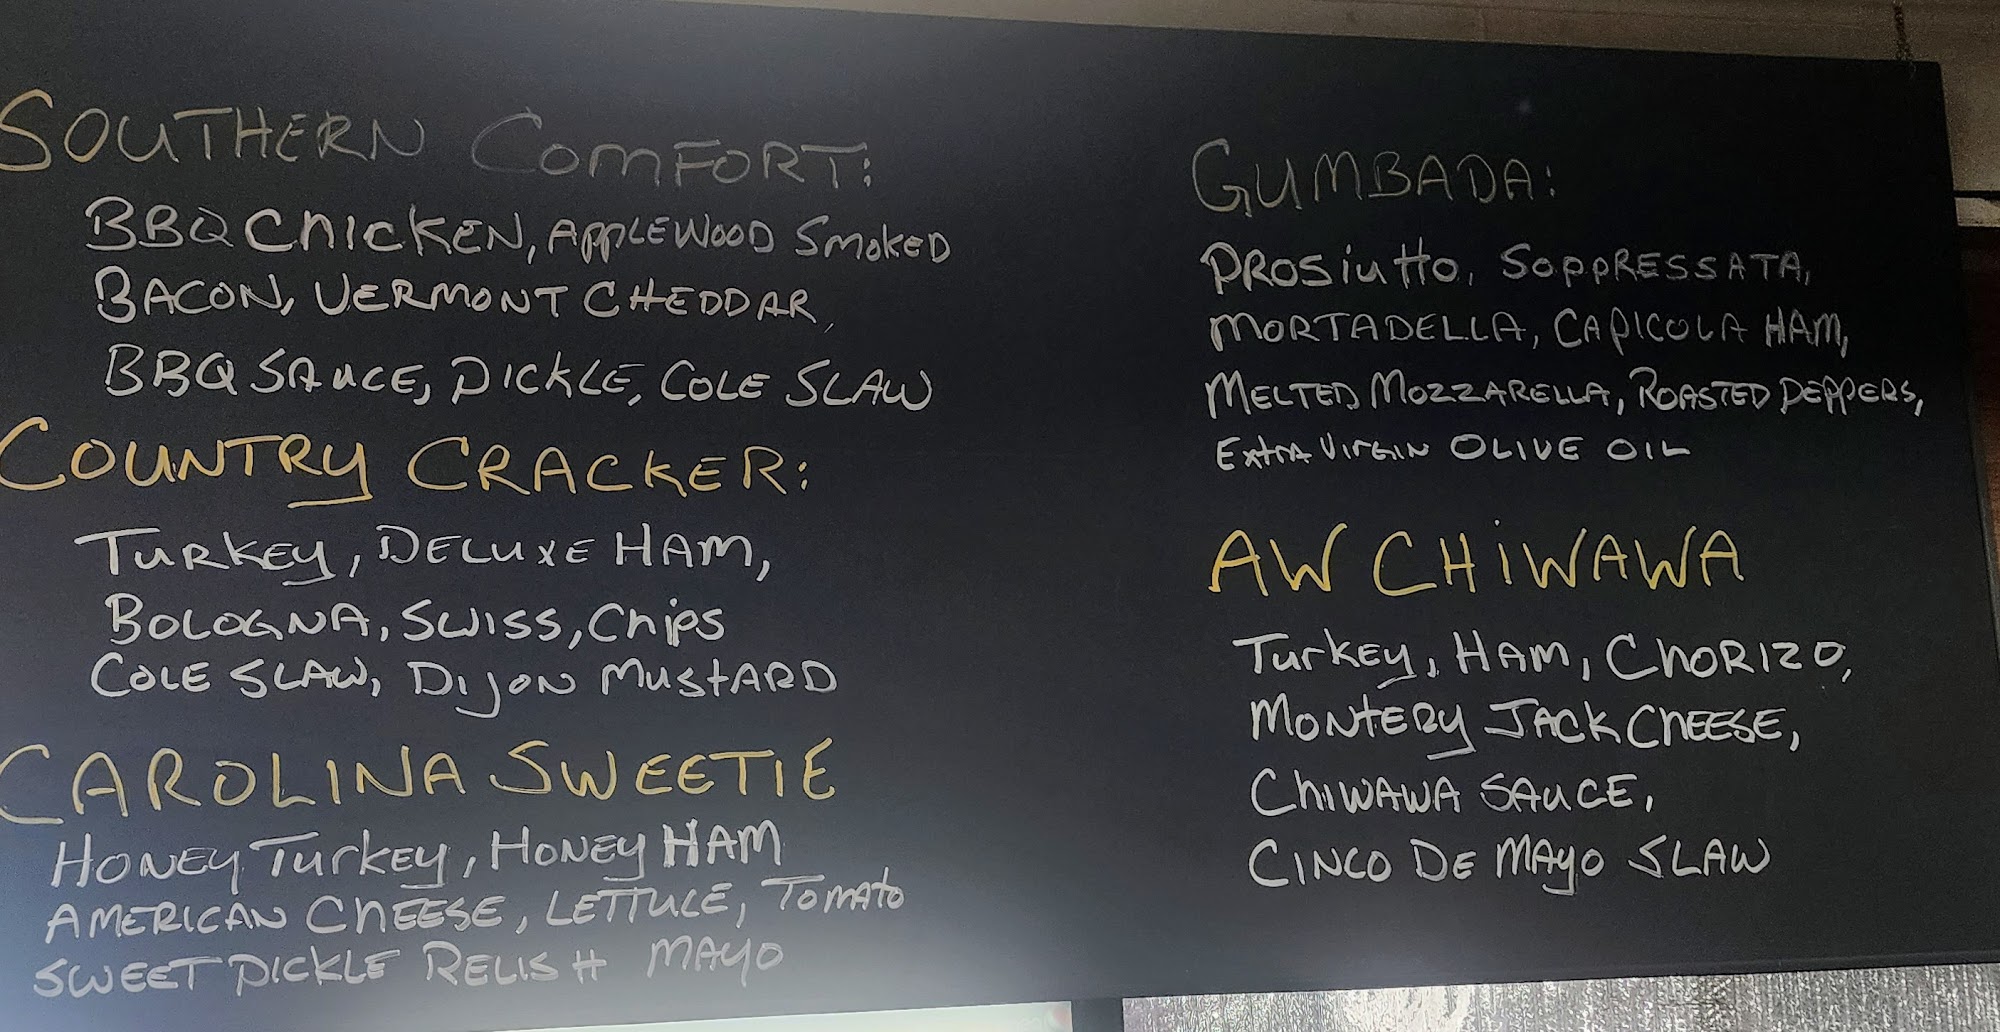 SOUTHERN COMFORT:
BBQ CHICKEN, APPLEWOOD SMOKED
BACON, VERMONT CHEDDAR,
BBQ SAUCE, PICKLE, COLE SLAW
COUNTRY CRACKER:
TURKEY, DELUXE HAM,
BOLOGNA, SWISS, CHIPS
COLE SLAW, DIJON MUSTARD
CAROLINA SWEETIE
HONEY TURKEY, HONEY HAM
AMERICAN CHEESE, LETTUCE, TOMATO
SWEET PICKLE RELISH MAYO
GUMBADA:
PROSIUTTO, SOPPRESSATA,
MORTADELLA, CAPICOLA HAM,
MELTED MOZZARELLA, ROASTED PEPPERS,
EXTRA VIRGIN OLIVE OIL
AW CHIWAWA
TURKEY, HAM, CHORIZO,
MONTERY JACK CHEESE,
CHIWAWA SAUCE,
CINCO DE MAYO SLAW